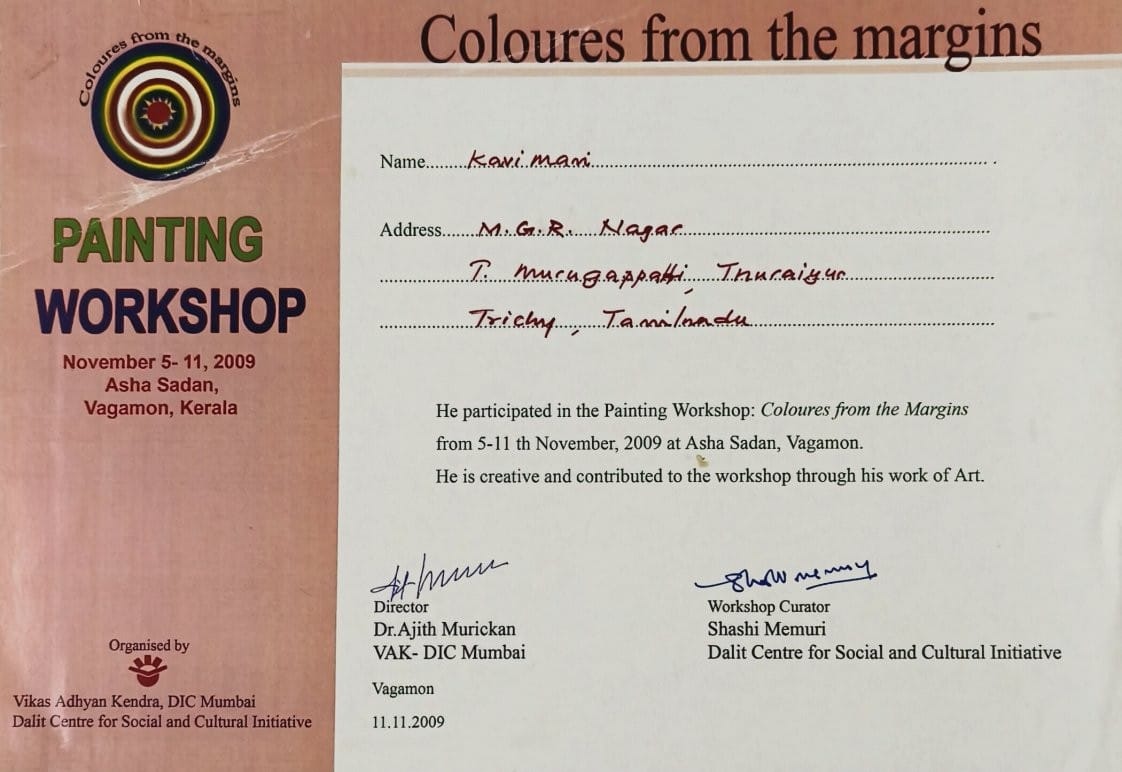 Coloures from the margins
Coloures from the margins
PAINTING
WORKSHOP
November 5- 11, 2009
Asha Sadan,
Vagamon, Kerala
Organised by
Vikas Adhyan Kendra, DIC Mumbai
Dalit Centre for Social and Cultural Initiative
Name Kavi mani
Address M.G.R. Nagar
T. Murugappatti, Thuraiyur
Trichy, Tamilnadu
He participated in the Painting Workshop: Coloures from the Margins
from 5-11 th November, 2009 at Asha Sadan, Vagamon.
He is creative and contributed to the workshop through his work of Art.
Director
Dr.Ajith Murickan
VAK- DIC Mumbai
Workshop Curator
Shashi Memuri
Dalit Centre for Social and Cultural Initiative
Vagamon
11.11.2009